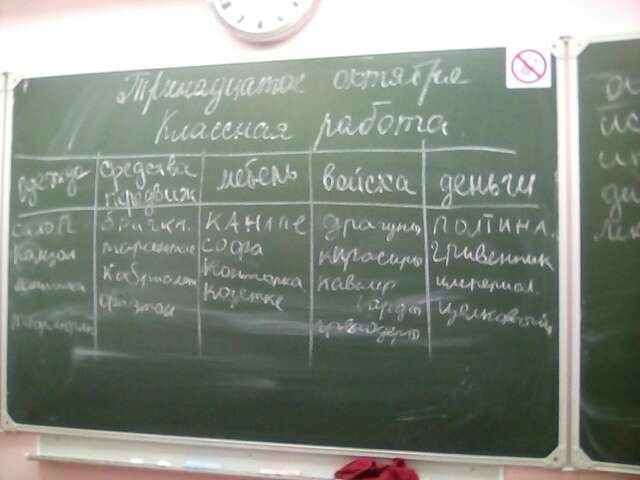 Тринадцатое октября
Классная работа
одежда средства передвиж мебель войска деньги
салоп бричка. канапе драгуны полтина.
камзол тарантас софа кирасиры гривенник
кабриолет конторка кавалер империал.
фаэтон козетке гарды целковый
гренадеры